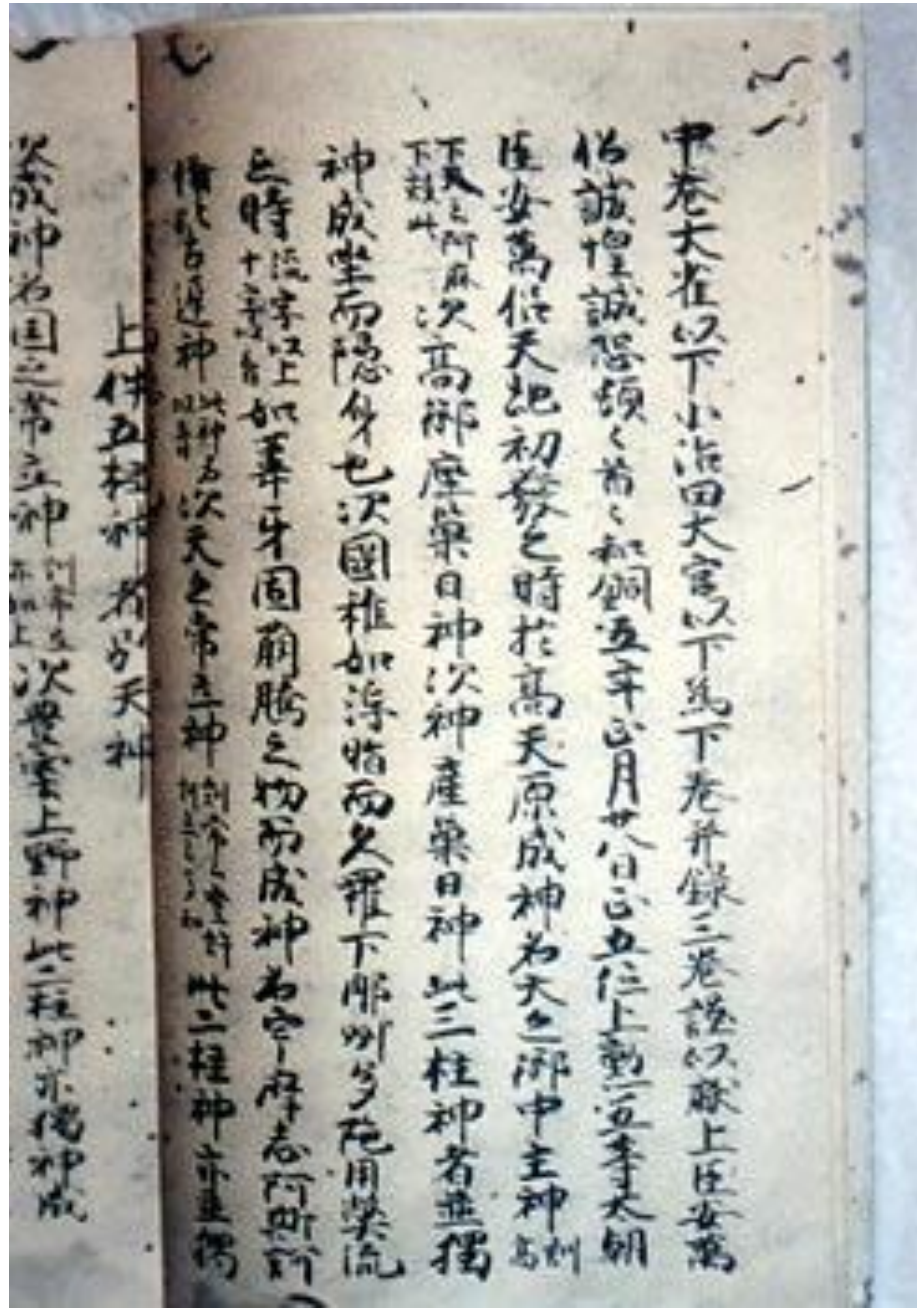 中巻大雀以下小治田大宮以下為下巻并録三巻謹以献上臣安萬
侶誠惶誠恐頓々首々和銅五年正月廿八日正五位上勲五等太朝
臣安萬侶天地初發之時於高天原成神名天之御中主神訓高
下天云阿麻下效此次高御産巣日神次神産巣日神此三柱神者並獨
神成坐而隠身也次國稚如浮脂而久羅下那州多陀用弊流
之時流字以上十字以音如葦牙因萌騰之物而成神名宇摩志阿斯訶
備比古遅神此神名以音次天之常立神 此二柱神亦並獨
上件五柱神者別天神
次成神名国之常立神訓常立亦如上次豊雲上野神此二柱神亦獨神成